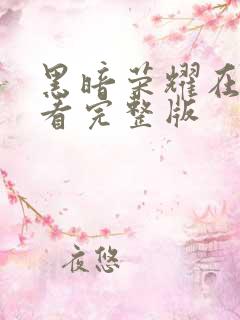 黑暗荣耀在
看完整版
夜悠